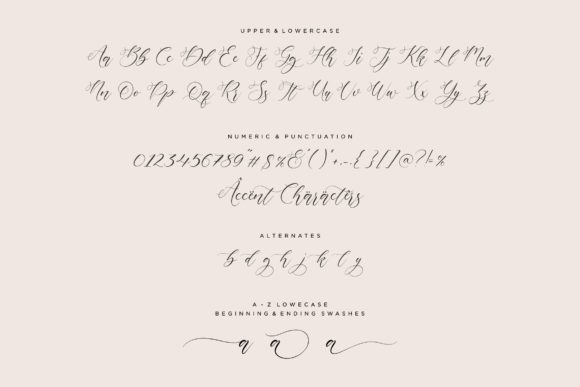 UPPER & LOWERCASE
Aa Bb Cc Dd Ee Ff Gg Hh Ii Jj Kk Ll Mm
Nn Oo Pp Qq Rr Ss Tt Uu Vv Ww Xx Yy Zz
NUMERIC & PUNCTUATION
0123456789"#$%&'()*+,-.{}[]@?!=%
Âccënt Chäräctèrs
ALTERNATES
b d g h j k l y
A - Z LOWECASE
BEGINNING & ENDING SWASHES
a a a